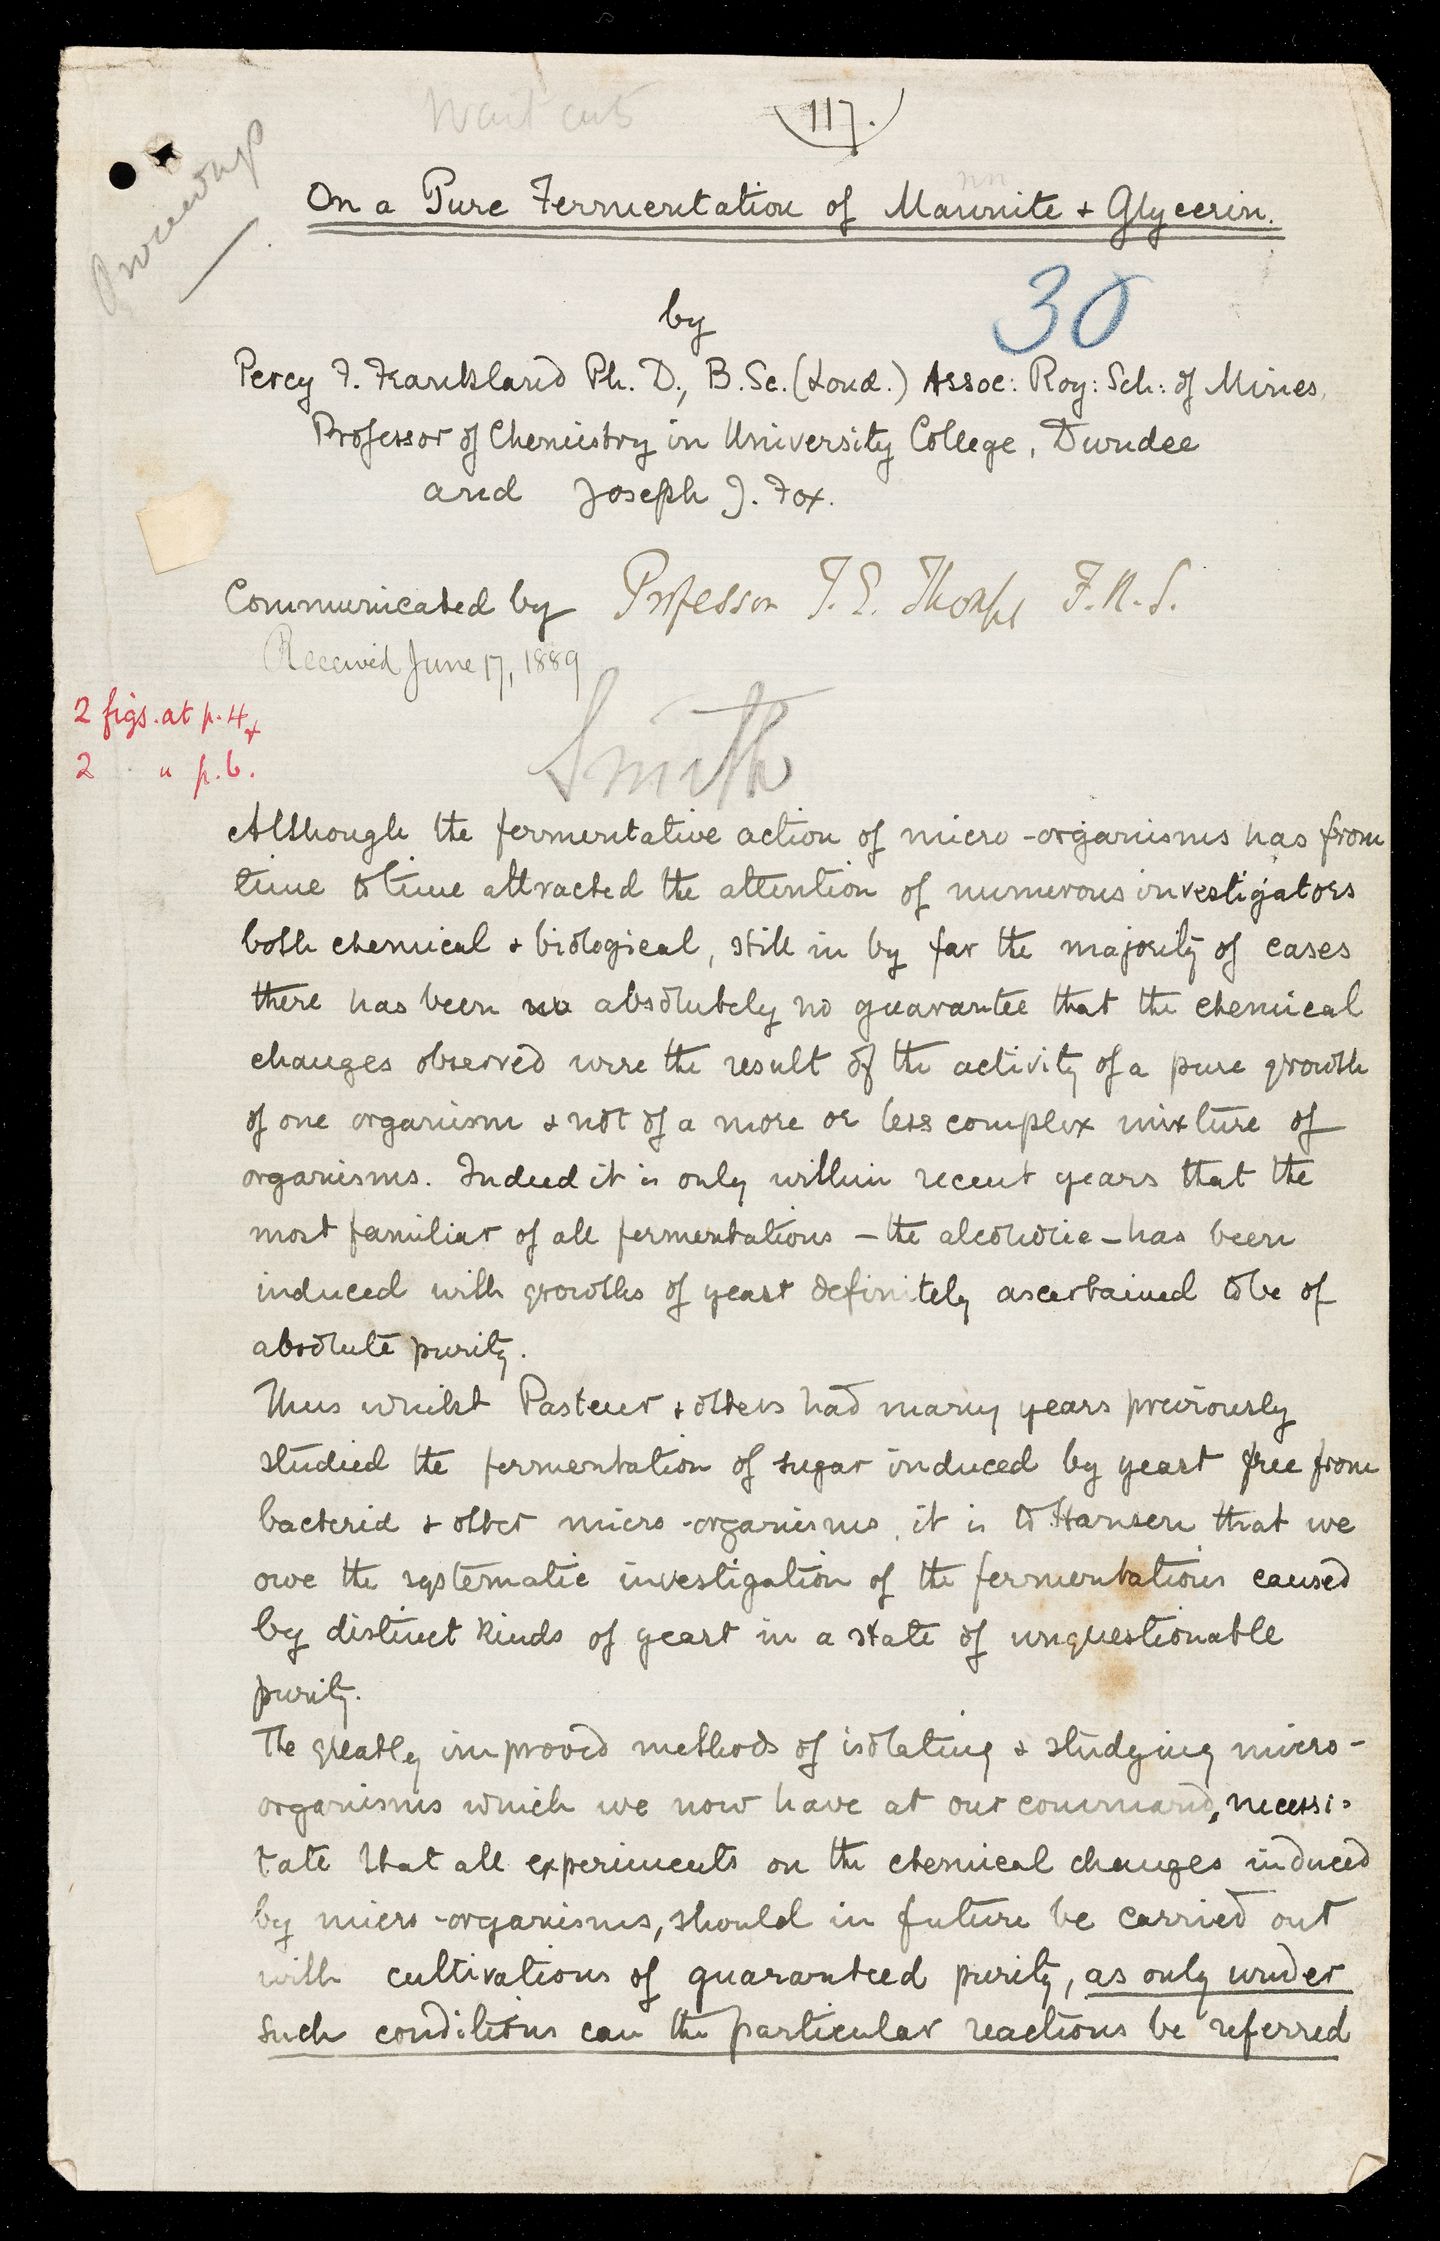 Wait cuts
117.
Proceedings
On a Pure Fermentation of Mannite & Glycerin.
nn
30
by
Percy F. Frankland Ph. D., B. Sc. (Lond.) Assoc: Roy: Sch: of Mines,
Professor of Chemistry in University College, Dundee
and Joseph J. Fox.
Communicated by Professor T. E. Thorpe F.R.S.
Received June 17, 1889
Smith
2 figs. at p. 4
2 " p. 6.
Although the fermentative action of micro-organisms has from
time to time attracted the attention of numerous investigators
both chemical & biological, still in by far the majority of cases
there has been no absolutely no guarantee that the chemical
changes observed were the result of the activity of a pure growth
of one organism & not of a more or less complex mixture of
organisms. Indeed it is only within recent years that the
most familiar of all fermentations – the alcoholic – has been
induced with growths of yeast definitely ascertained to be of
absolute purity.
Thus whilst Pasteur & others had many years previously
studied the fermentation of sugar induced by yeast free from
bacteria & other micro-organisms, it is to Hansen that we
owe the systematic investigation of the fermentations caused
by distinct kinds of yeast in a state of unquestionable
purity.
The greatly improved methods of isolating & studying micro-
organisms which we now have at our command, necessi-
tate that all experiments on the chemical changes induced
by micro-organisms, should in future be carried out
with cultivations of guaranteed purity, as only under
such conditions can the particular reactions be referred